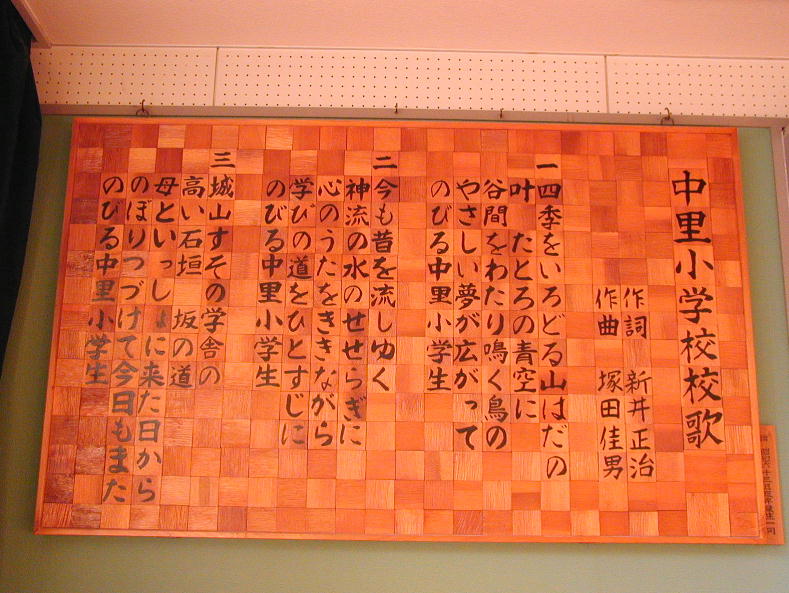 中里小学校校歌
作詞 新井正治
作曲 塚田佳男
一 四季をいろどる山はだの
叶 たとろの青空に
谷間をわたり鳴く鳥の
やさしい夢が広がって
のびる中里小学生
二 今も昔を流しゆく
神流の水のせせらぎに
心のうたをききながら
学びの道をひとすじに
のびる中里小学生
三 城山すその学舎の
高い石垣 坂の道
母といっしょに来た日から
のぼりつづけて今日もまた
のびる中里小学生